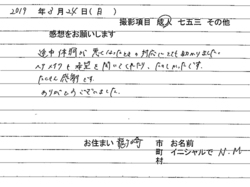 2019 年 3 月 24 日 ( 日 )
撮影項目 成人 七五三 その他
感想をお願いします
途中体調が悪くなったときの対応にとても助かりました。
ヘアメイクも希望を聞いてくれたり、たのしかったです。
たいへん感謝です。
ありがとうございました。
お住まい 市 町 村
お名前 イニシャルで N.M